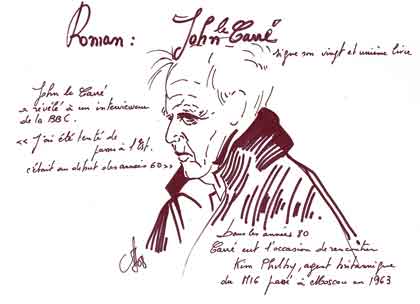 Roman : John le Carré
signe son vingt et unième livre
John le Carré
a révélé à un intervieweur
de la BBC.
« J'ai été tenté de
passer à l'Est.
c'était au début des années 60 »
Dans les années 80
Carré eut l'occasion de rencontrer
Kim Philby, agent britannique
du MI6 passé à Moscou en 1963